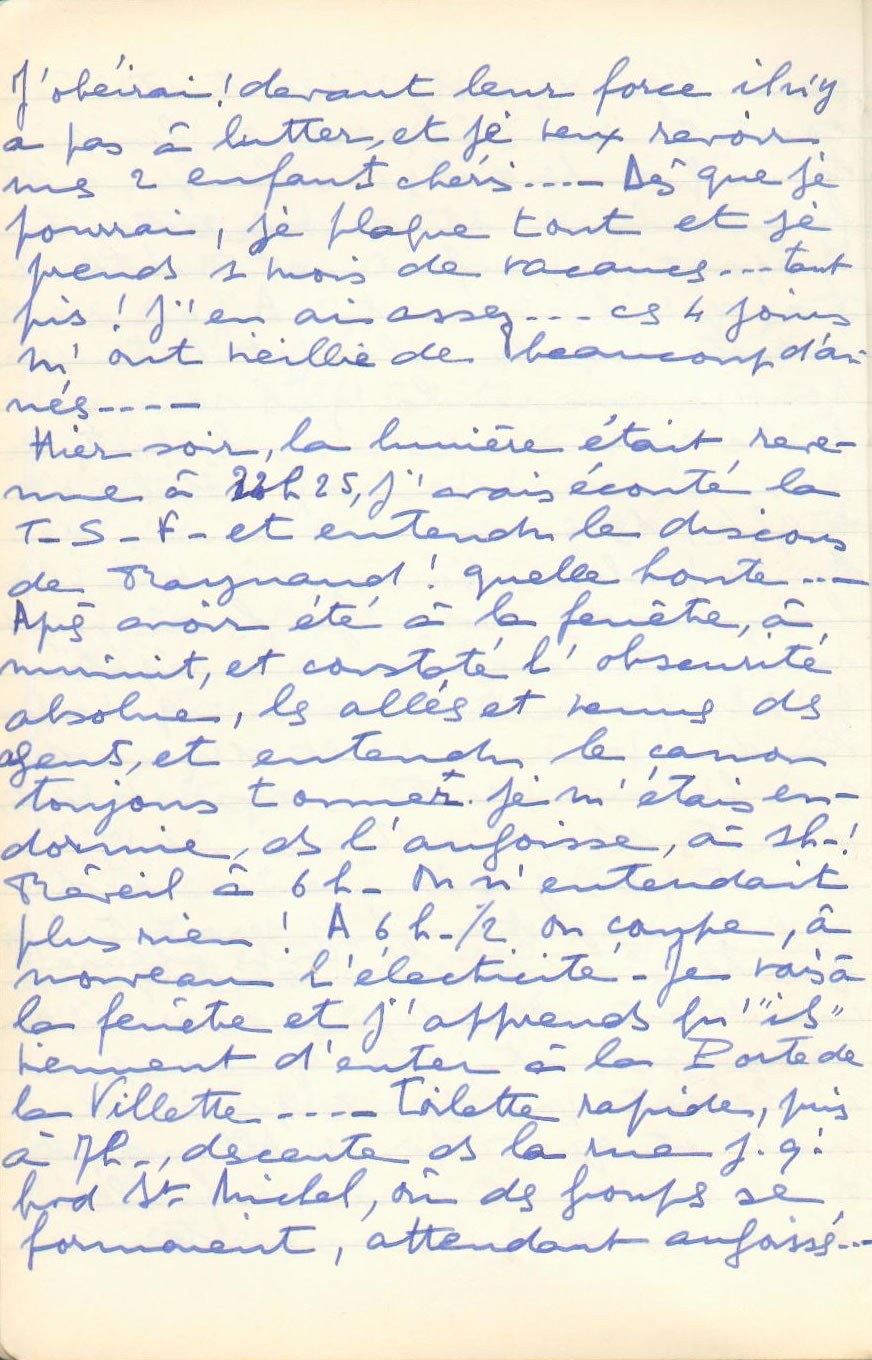 J'obéirai! devant leur force il n'y
a pas à lutter, et je veux revoir
mes 2 enfants chéris.... Dès que je
pourrai, je plaque tout et je
prends 1 mois de vacances... tant
pis! J'en ai assez... ces 4 jours
m'ont vieillie de beaucoup d'an-
nés....
Hier soir, la lumière était reve-
nue à h 25, j'avais écouté la
T-S-F- et entendu le discours
de Raynaud! quelle honte...
Après avoir été à la fenêtre, à
minuit, et constaté l'obscurité
absolue, les allés et venus des
agents, et entendu le canon
toujours tonner. Je m'étais en-
dormie, ds l'angoisse, à 1h-!
Réveil à 6h- On n'entendait
plus rien! A 6h-1/2 on coupe, à
nouveau l'électricité- Je vais à
la fenêtre et j'apprends qu'"ils"
viennent d'entrer à la Porte de
la Villette.... Toilette rapide, puis
à 7h-, descente ds la rue j.q:
bvd St- Michel, où des groups se
formaient, attendant angoissés...